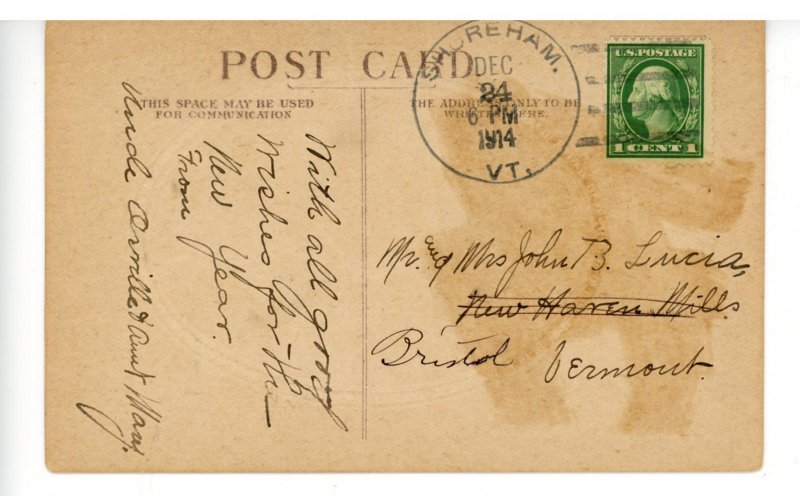 POST CARD
THIS SPACE MAY BE USED
FOR COMMUNICATION
THE ADDRESS ONLY TO BE
WRITTEN HERE.
SHOREHAM.
DEC
24
6 PM
1914
VT.
U.S. POSTAGE
1 CENT 1
With all good
wishes for the
New Year.
From
Uncle Orville & Aunt Mary.
Mr. and Mrs John B. Lucia,
New Haven Mills
Bristol Vermont.